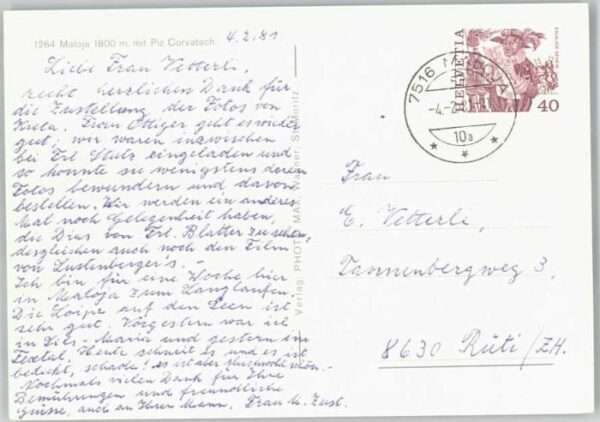 1264 Maloja 1800 m. mit Piz Corvatsch.
4.2.81
Liebe Frau Vetterli,
recht herzlichen Dank für
die Zustellung der Fotos von
Kreta. Frau Ottiger geht es wieder
gut, wir waren inzwischen
bei Frl. Stutz eingeladen und
so konnte sie wenigstens deren
Fotos bewundern und davon
bestellen. Wir werden ein anderes
Mal noch Gelegenheit haben,
die Dias von Frl. Blatter zu sehen,
desgleichen auch noch den Film
von Lustenberger's. -
Ich bin für eine Woche hier
in Maloja zum Langlaufen.
Die Loipe auf den Seen ist
sehr gut. Vorgestern war ich
in Sils-Maria und gestern im
Fextal. Heute schneit es und es ist
bedeckt, schade! es ist aber schön.
Nochmals vielen Dank für Ihre
Bemühungen und freundliche
Grüsse, auch an Ihren Mann. Frau
Verlag PHOTO MAX St. Moritz
HELVETIA
40
7516
-4.-2.81
10a
Frau
E. Vetterli,
Tannenbergweg 3
8630 Rüti/ZH.